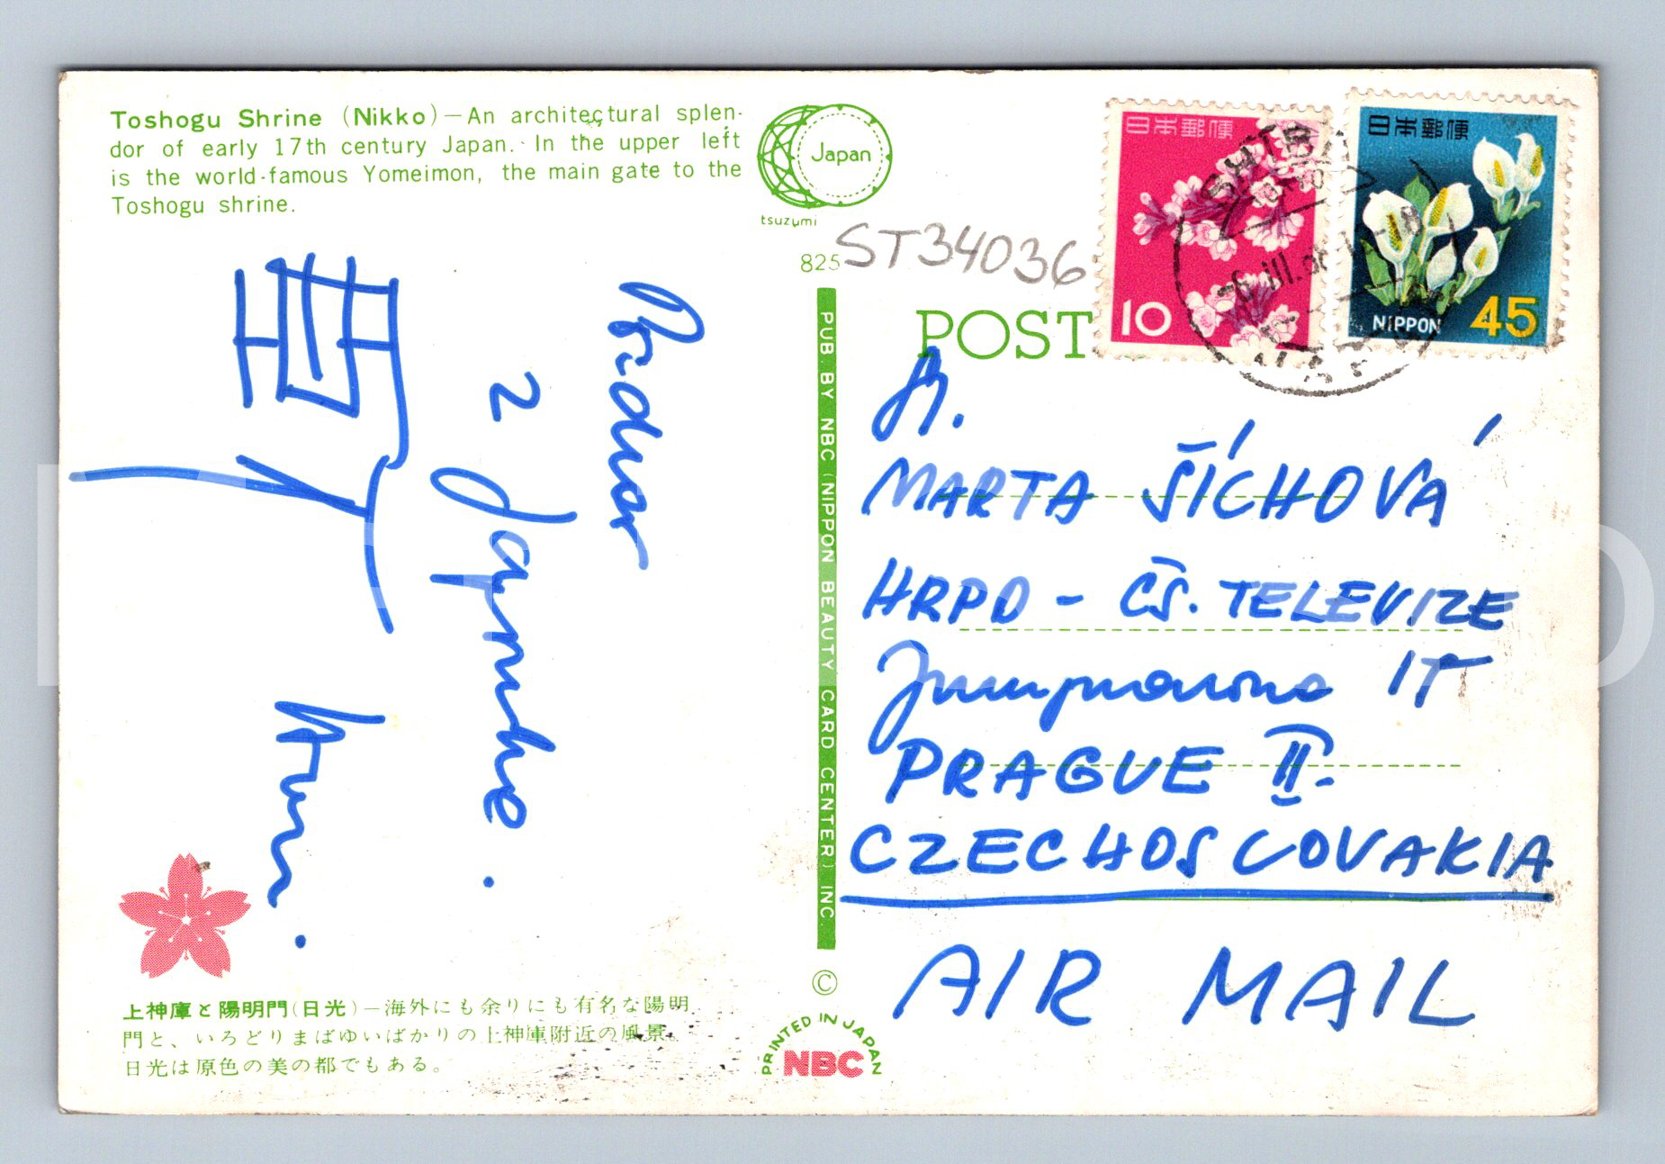 Toshogu Shrine (Nikko)—An architectural splen-
dor of early 17th century Japan. In the upper left
is the world-famous Yomeimon, the main gate to the
Toshogu shrine.
Japan
tsuzumi
825
ST34036
POST
日本郵便
10
日本郵便
NIPPON
45
PUB. BY NBC (NIPPON BEAUTY CARD CENTER) INC.
Pozdrav
z Japonska.
MARTA ŠÍCHOVÁ
HRPD - ČS. TELEVIZE
Jungmannova
PRAGUE II.
CZECHOSLOVAKIA
AIR MAIL
上神庫と陽明門(日光)—海外にも余りにも有名な陽明
門と、いろどりまばゆいばかりの上神庫附近の風景。
日光は原色の美の都でもある。
©
PRINTED IN JAPAN
NBC